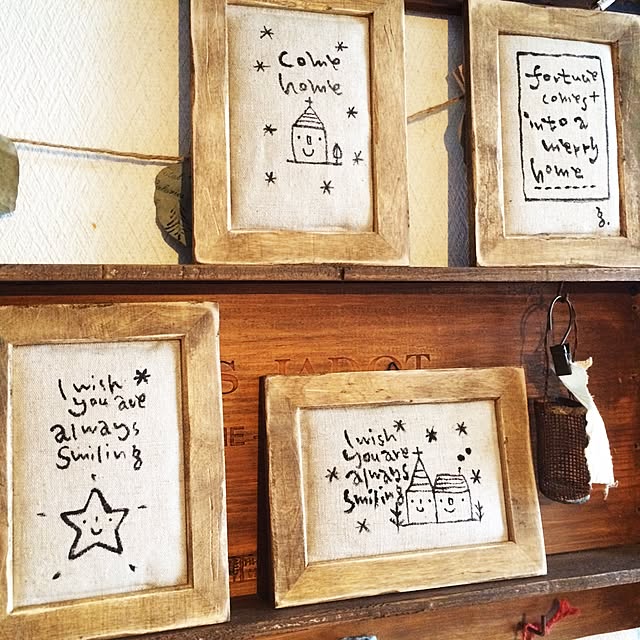 Come
home
fortune
comest
into a
merry
home
I wish
you are
always
smiling
I wish
you are
always
smiling
JADOT